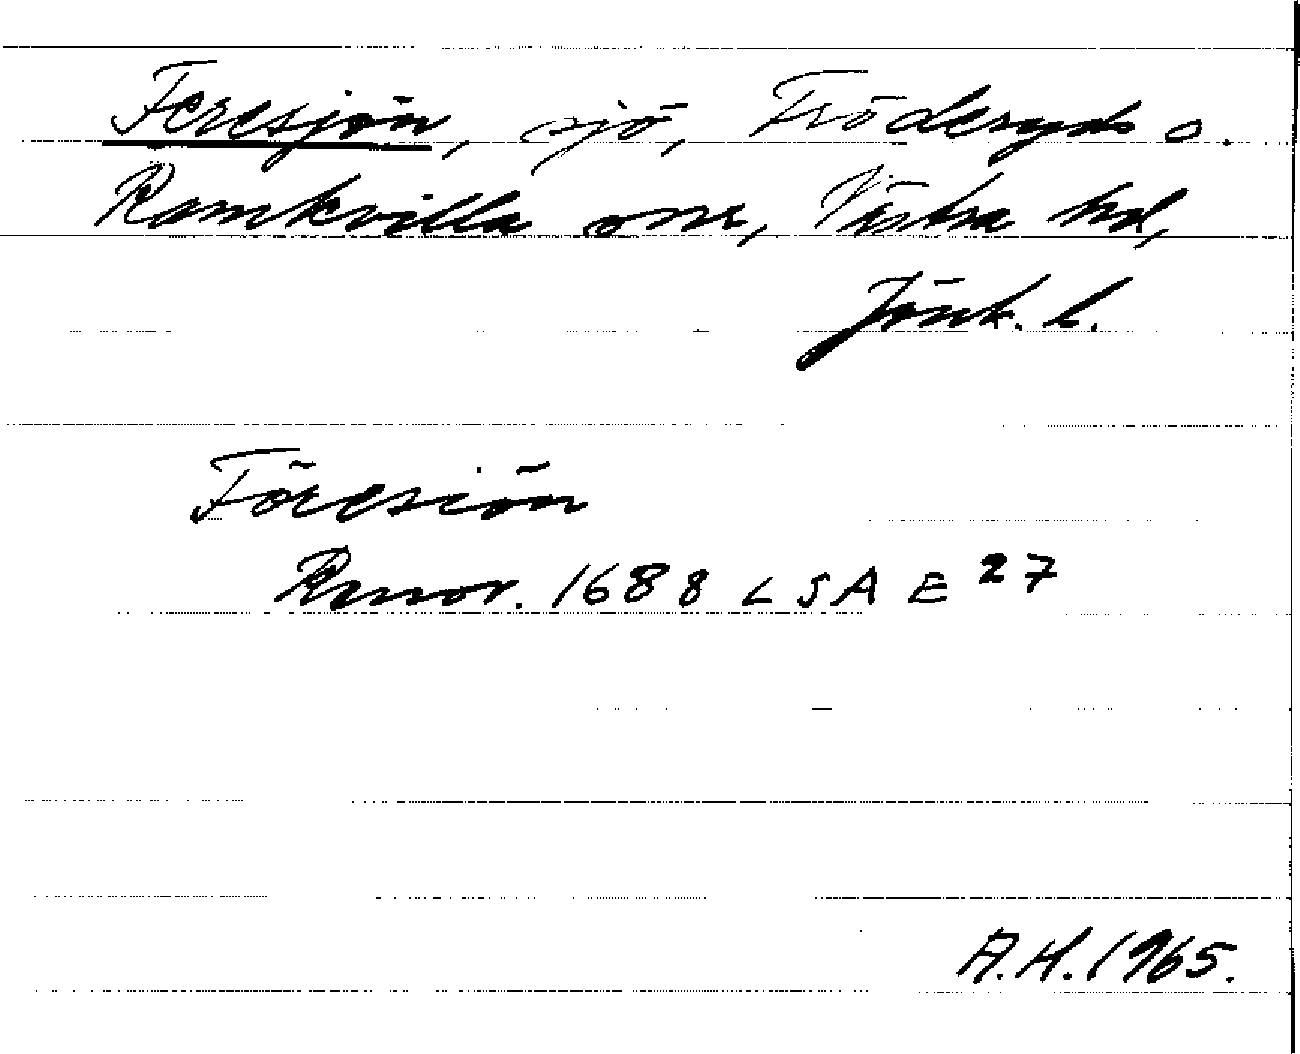 Feresjön, sjö, Fröderyds o.
Ramkvilla snr, Västra hd,
Jönk. l.
Föresiön
Ransor. 1688 LSA E 27
A.H. 1965.